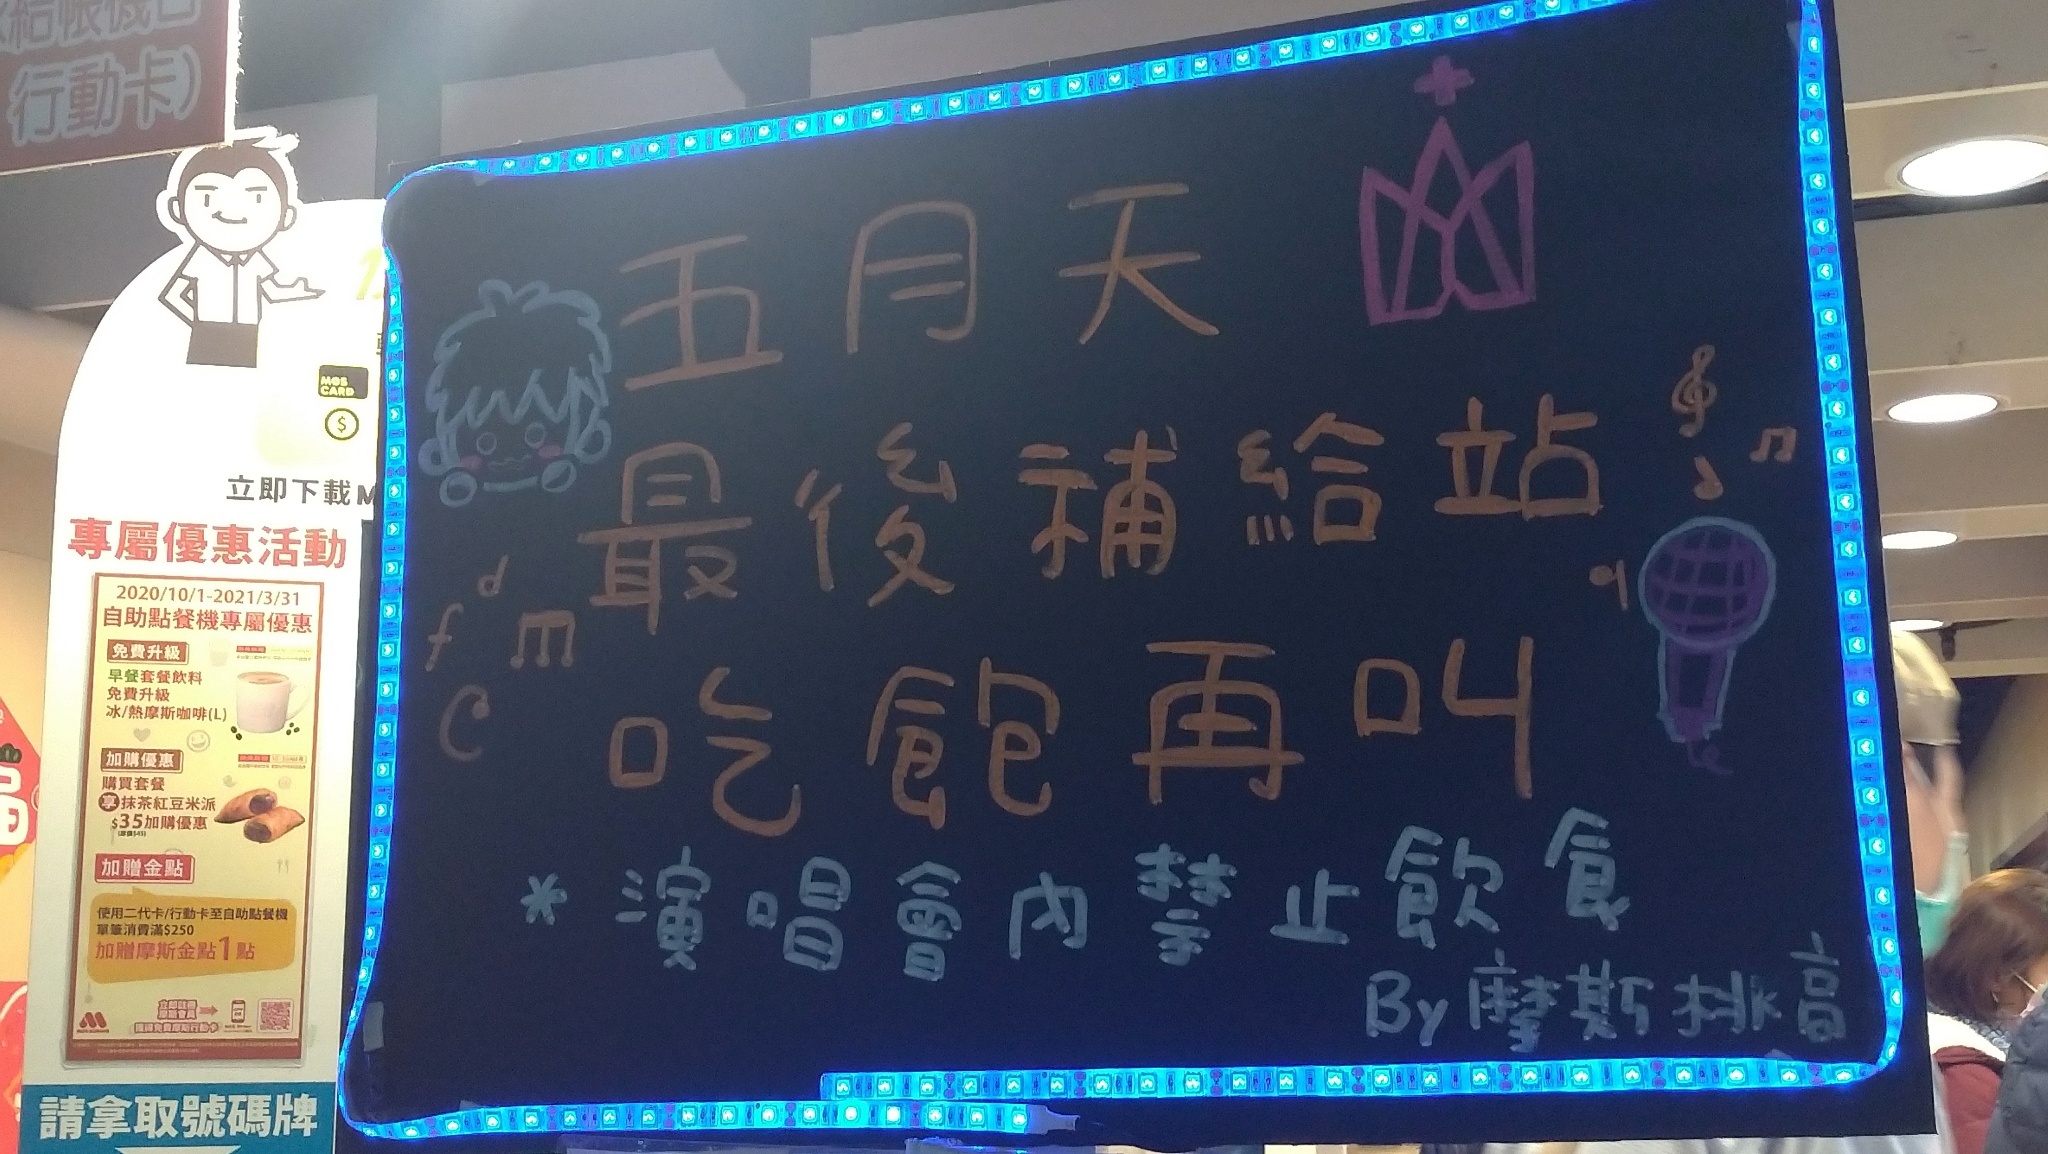 結帳機台
行動卡)
MOS CARD
$
立即下載M
專屬優惠活動
2020/10/1-2021/3/31
自助點餐機專屬優惠
免費升級
早餐套餐飲料
免費升級
冰/熱摩斯咖啡(L)
加購優惠
購買套餐
享抹茶紅豆米派
$35加購優惠
加贈金點
使用二代卡/行動卡至自助點餐機
單筆消費滿$250
加贈摩斯金點1點
請拿取號碼牌
五月天
最後補給站
吃飽再叫
*演唱會內禁止飲食
By摩斯挑高